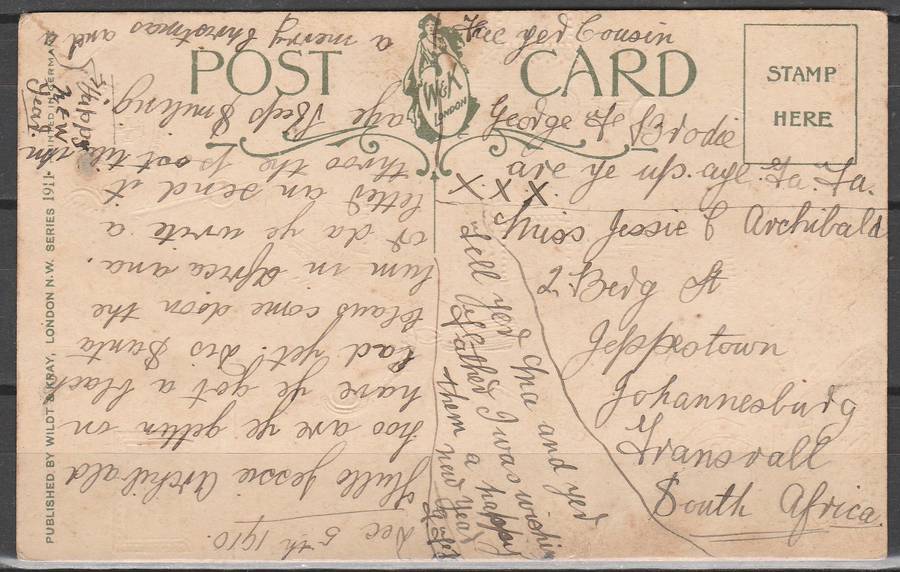 POST CARD
W&K
LONDON
STAMP
HERE
PUBLISHED BY WILDT & KRAY, LONDON N.W. SERIES 1911. PRINTED IN GERMANY
Dec 5th 1910.
Hullo Jessie Archibald
hoo are ye gettin on
have ye got a black
lad yet. Dis Santa
Claus come doon the
lum in Africa ana.
of da ye write a
letter an send it
throo the post till him
aye Keep Smiling
a merry Christmas and a
Happy
New
Year.
Fae yer Cousin
George F Brodie
are ye up. aye. Ta. Ta.
X. X X.
Miss Jessie C Archibald
2 Berg St
Jeppestown
Johannesburg
Transvall
South Africa.
Tell yer Ma and yer
Father I was wishin
them a happy
new year